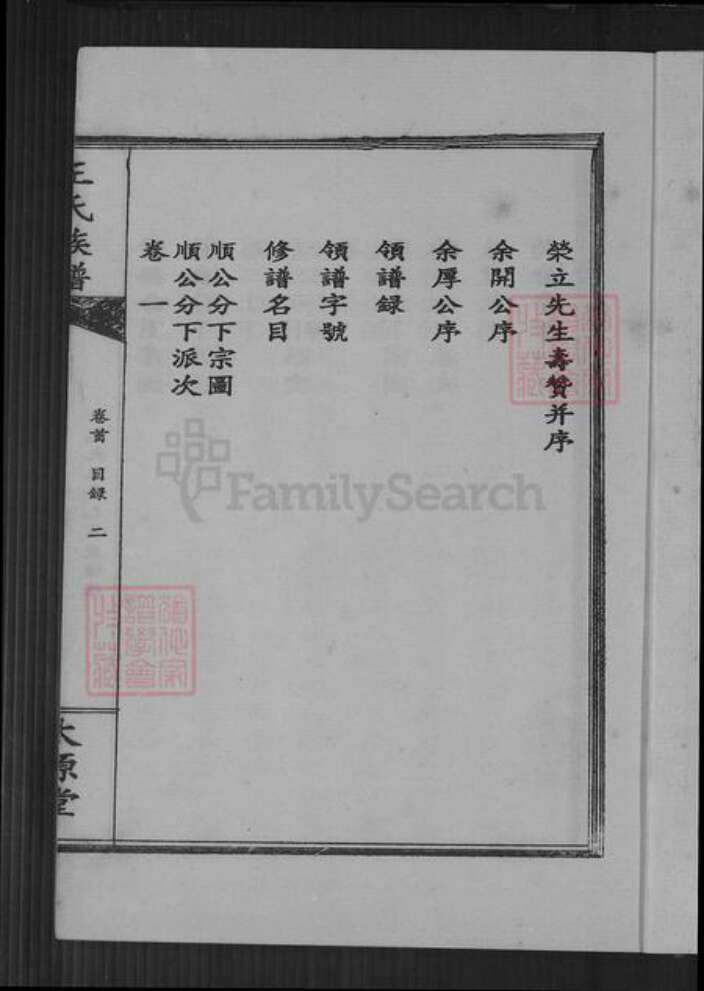 榮立先生壽贊并序
余開公序
余厚公序
領譜録
領譜字號
修譜名目
順公分下宗圖
順公分下派次
卷一
王氏族譜
卷首 目録 二
太原堂
FamilySearch